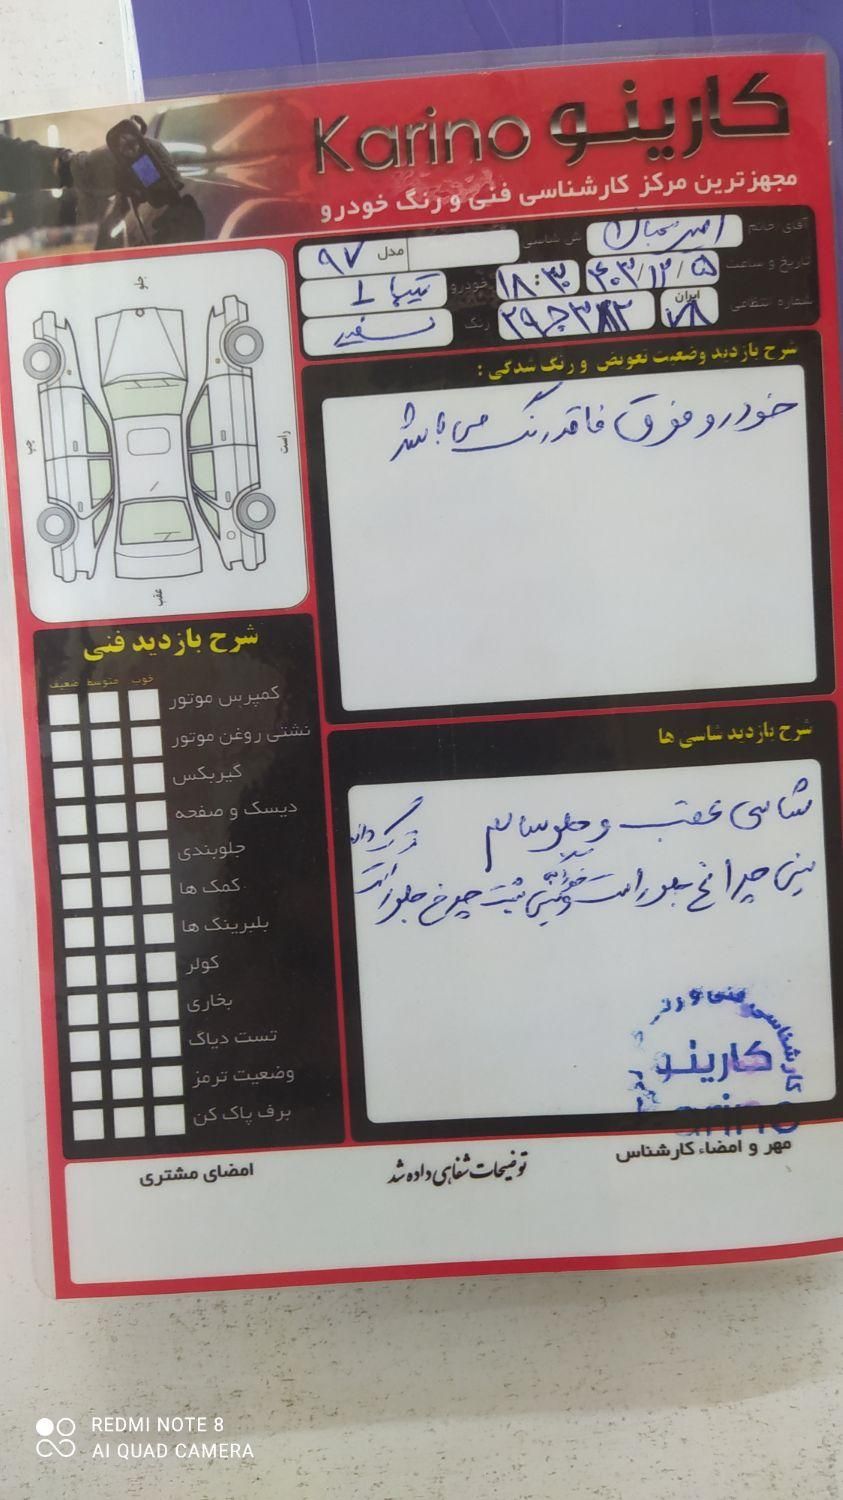 Karino کارینو
مجهزترین مرکز کارشناسی فنی و رنگ خودرو
آقای/خانم امیر ش شاسی مدل ۹۷
تاریخ و ساعت ۴۰۳/۱۲/۰۵ ۱۸:۳۰ خودرو تیبا ۲
شماره انتظامی ایران ۷۸ رنگ سفید
جلو
راست
چپ
عقب
شرح بازدید وضعیت تعویض و رنگ شدگی :
خودرو فوق فاقد رنگ می باشد
شرح بازدید فنی
خوب متوسط ضعیف
کمپرس موتور
نشتی روغن موتور
گیربکس
دیسک و صفحه
جلوبندی
کمک ها
بلبرینگ ها
کولر
بخاری
تست دیاگ
وضعیت ترمز
برف پاک کن
شرح بازدید شاسی ها
شاسی عقب و جلو سالم
سینی چراغ جلو راست
کارشناسی فنی و رنگ
کارینو
مهر و امضاء کارشناس
توضیحات شفاهی داده شد
امضای مشتری
REDMI NOTE 8
AI QUAD CAMERA